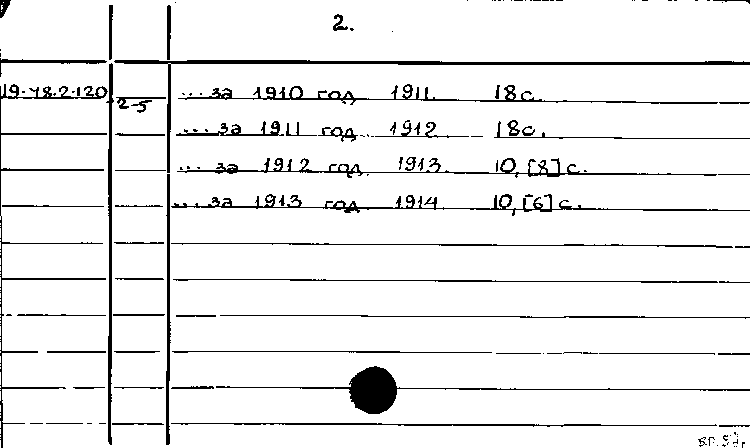 2.
19.48.2.120 2-5 ... за 1910 год 1911. 18 с.
... за 1911 год 1912 18 с.
... за 1912 год 1913. 10, [8] с.
... за 1913 год 1914 10, [6] с.